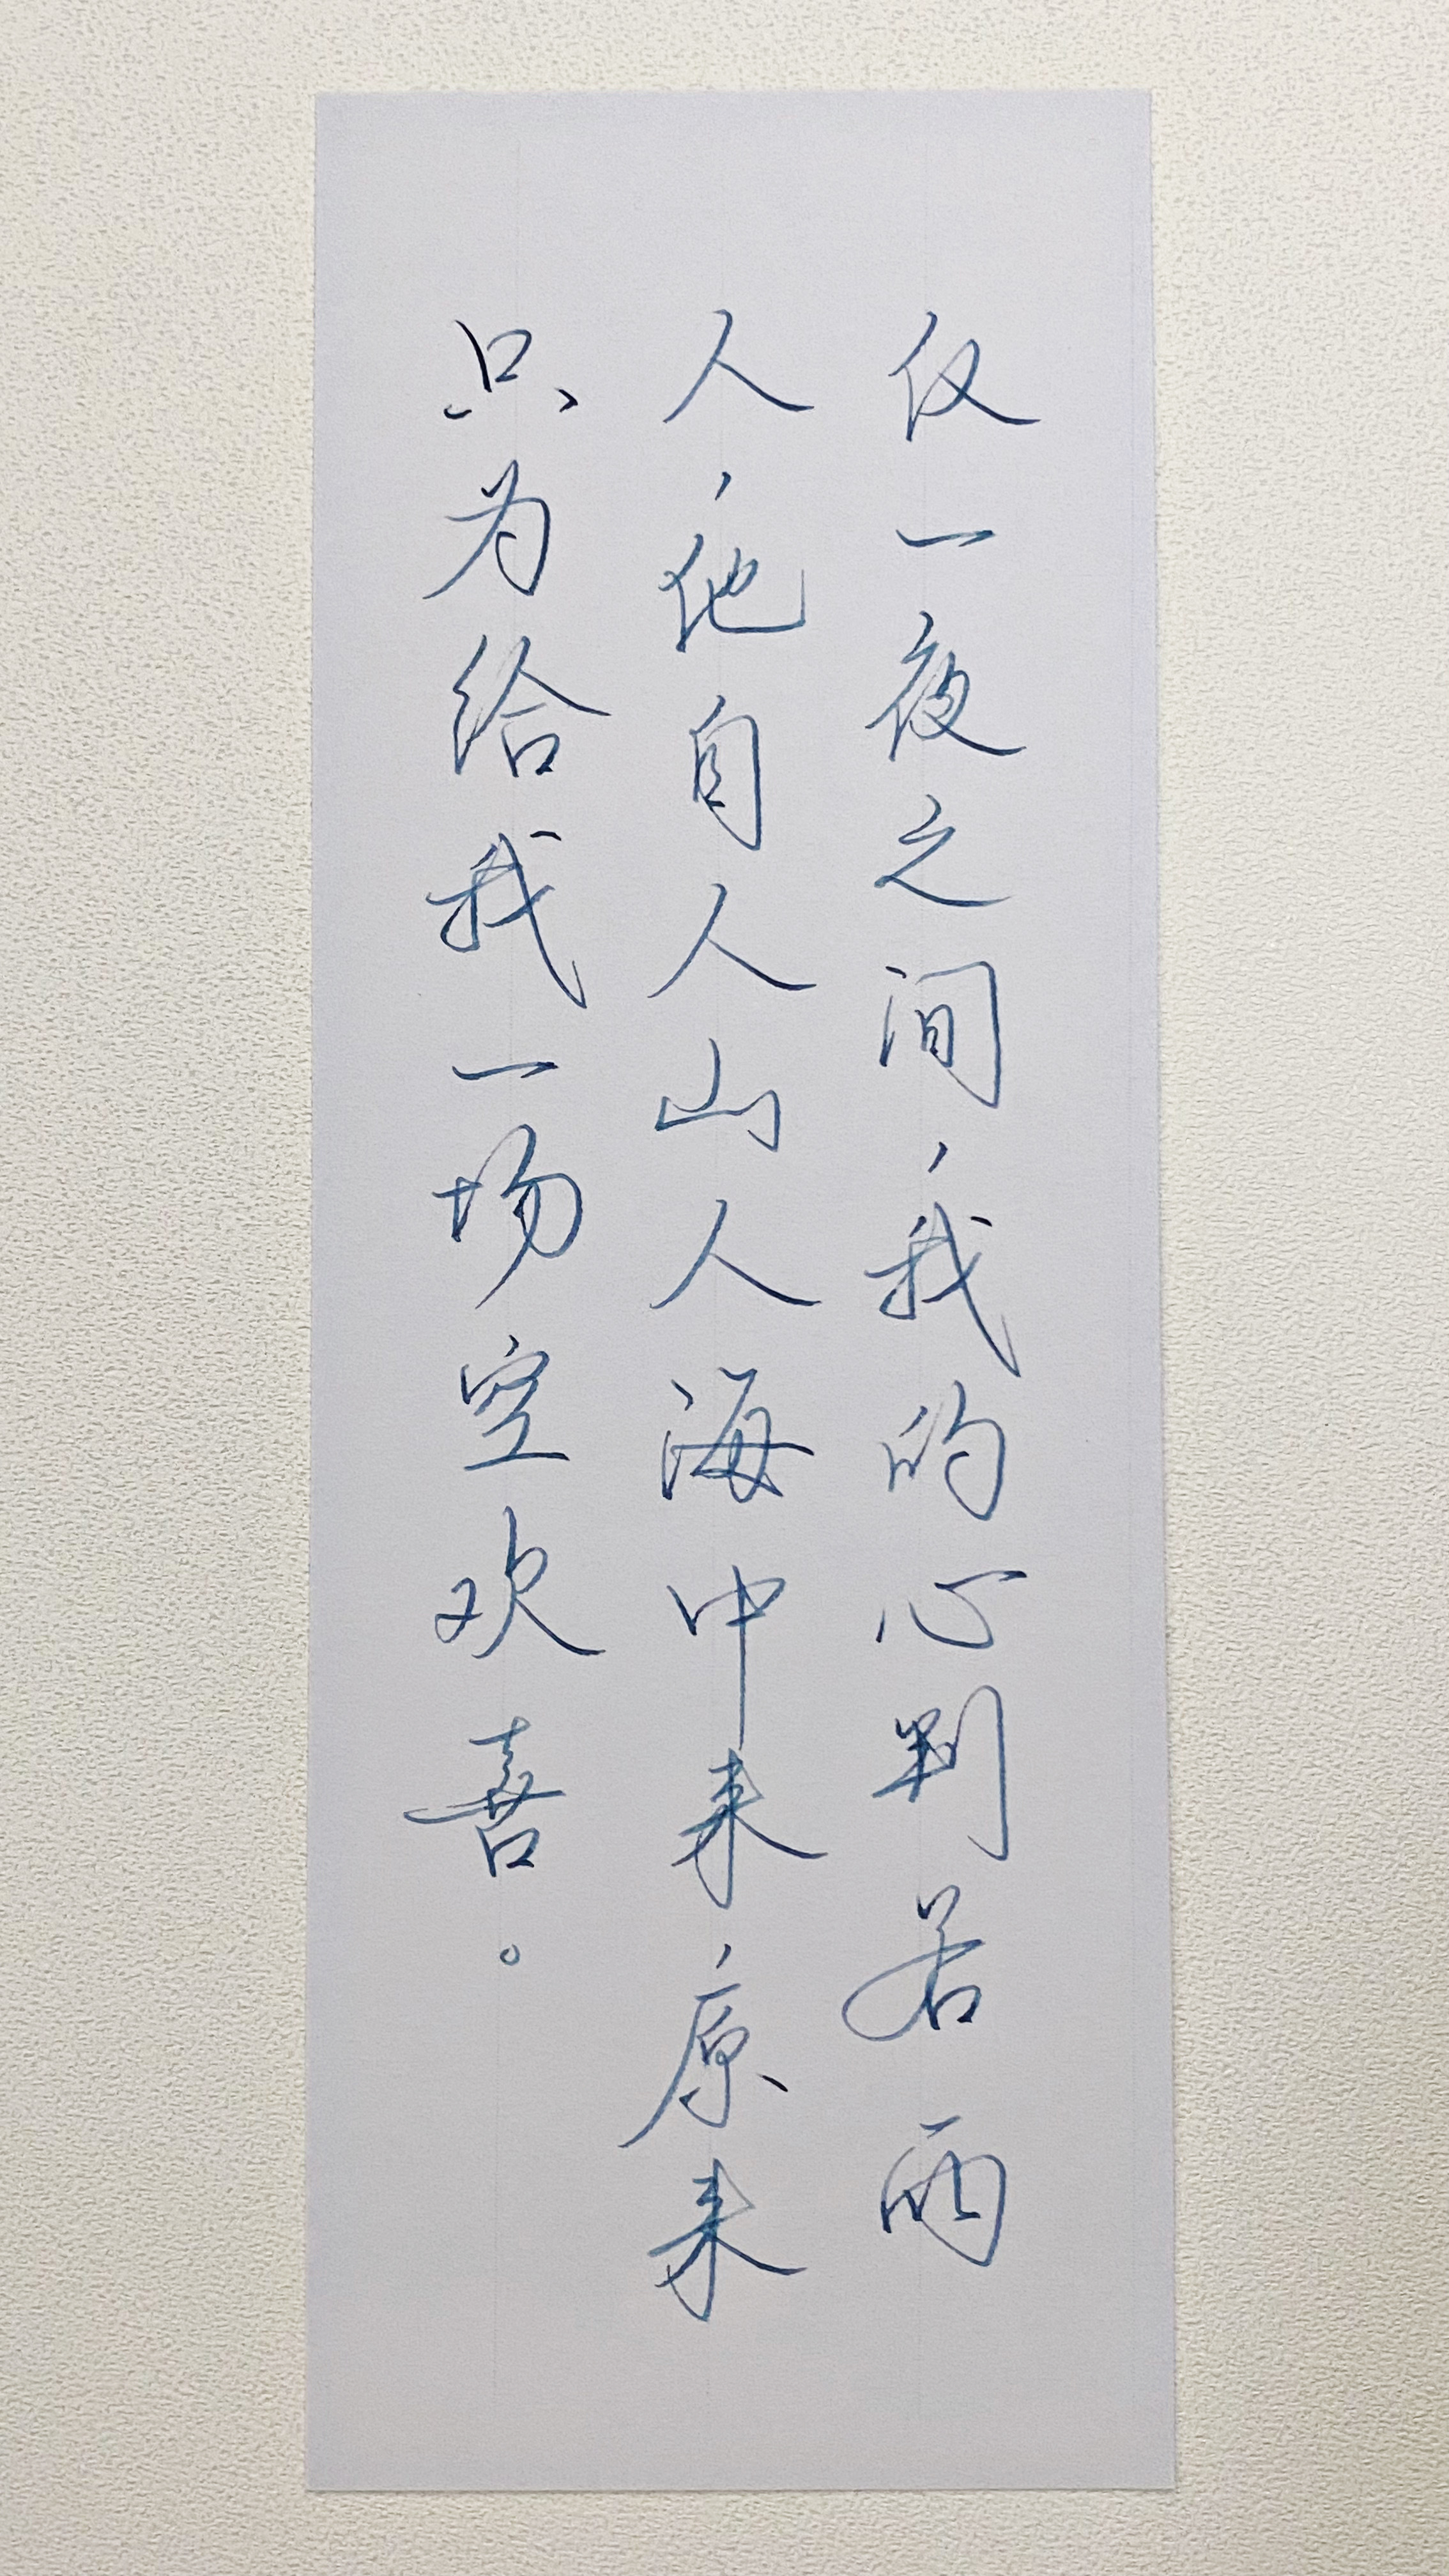 仅一夜之间，我的心判若两
人，他自人山人海中来，原来
只为给我一场空欢喜。